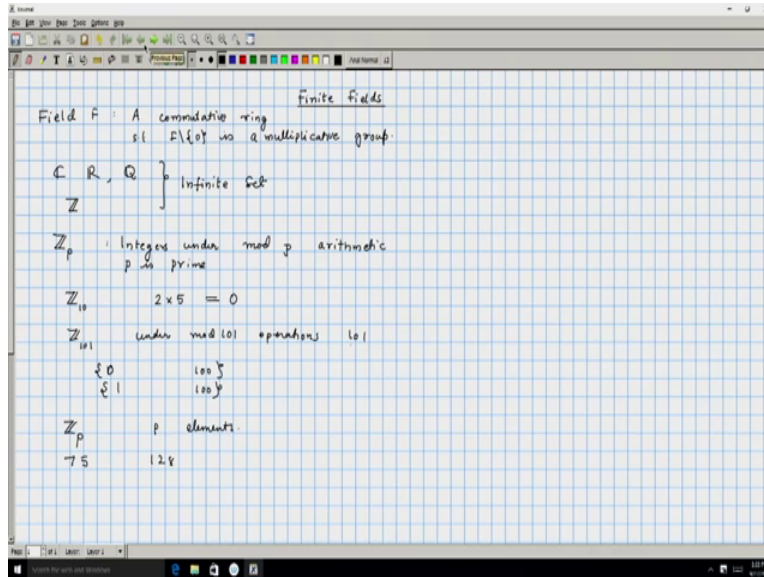 File Edit View Page Tools Options Help
Previous Page
Finite Fields
Field F : A commutative ring
st F\{0} is a multiplicative group.
ℂ ℝ, ℚ } Infinite Set
ℤ
ℤp : Integers under mod p arithmetic
p is prime
ℤ10 2 × 5 = 0
ℤ101 under mod 101 operations 101
{0 100}
{1 100}
ℤp p elements.
75 128
Page 1 of 1 Layer: Layer 1
Search the web and Windows